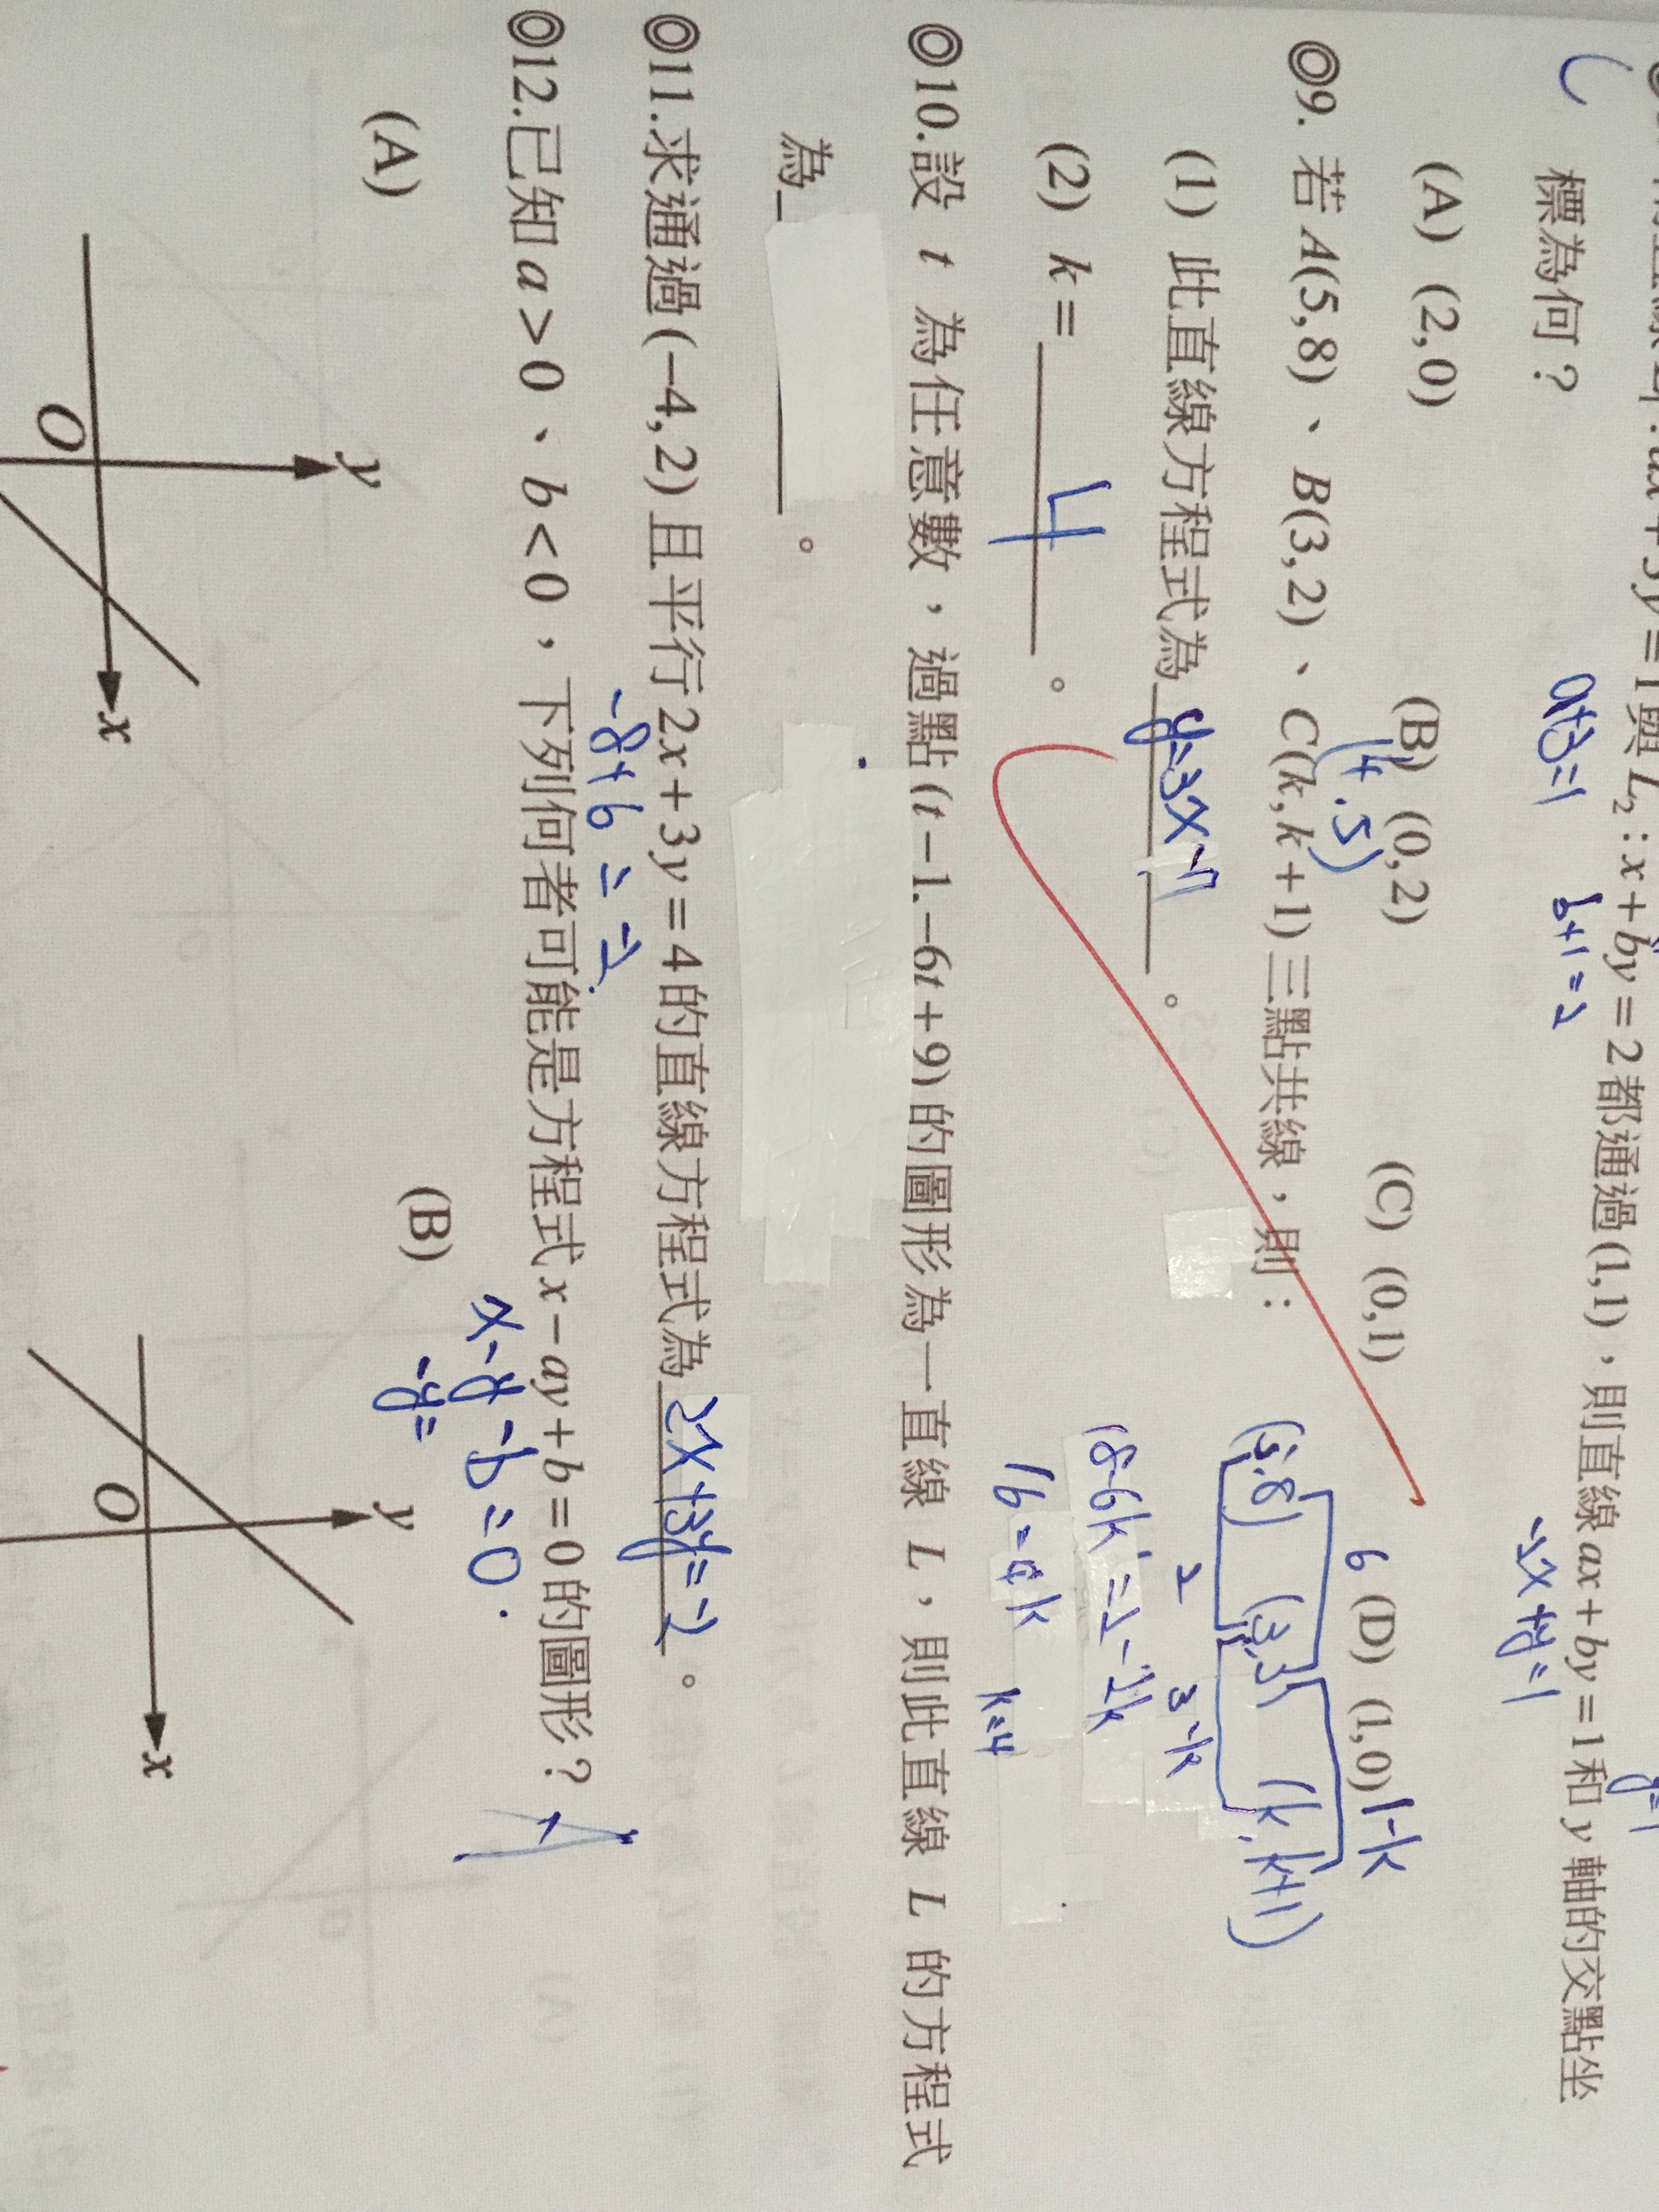 L₂:x+by=2都通過(1,1),則直線ax+by=1和y軸的交點坐
標為何?
a+3=1
b+1=2
-2x+y=1
(A) (2,0) (B) (0,2) (C) (0,1) (D) (1,0)
(4.5)
6
1-k
◎9. 若A(5,8)、B(3,2)、C(k,k+1)三點共線,則:
(5.8) (k.k+1)
2 3-k
(1) 此直線方程式為y=3x-7。
18-6k=2-2k
(2) k=4。
16=4k
k=4
◎10.設 t 為任意數,過點(t-1.-6t+9)的圖形為一直線 L,則此直線 L 的方程式
為 。
◎11.求通過(-4,2)且平行2x+3y=4的直線方程式為2x+3y=-2。
-8+6=-2
◎12.已知a>0、b<0,下列何者可能是方程式x-ay+b=0的圖形?
A
x-y-b=0.
-y=
(A) (B)
y y
O x O x